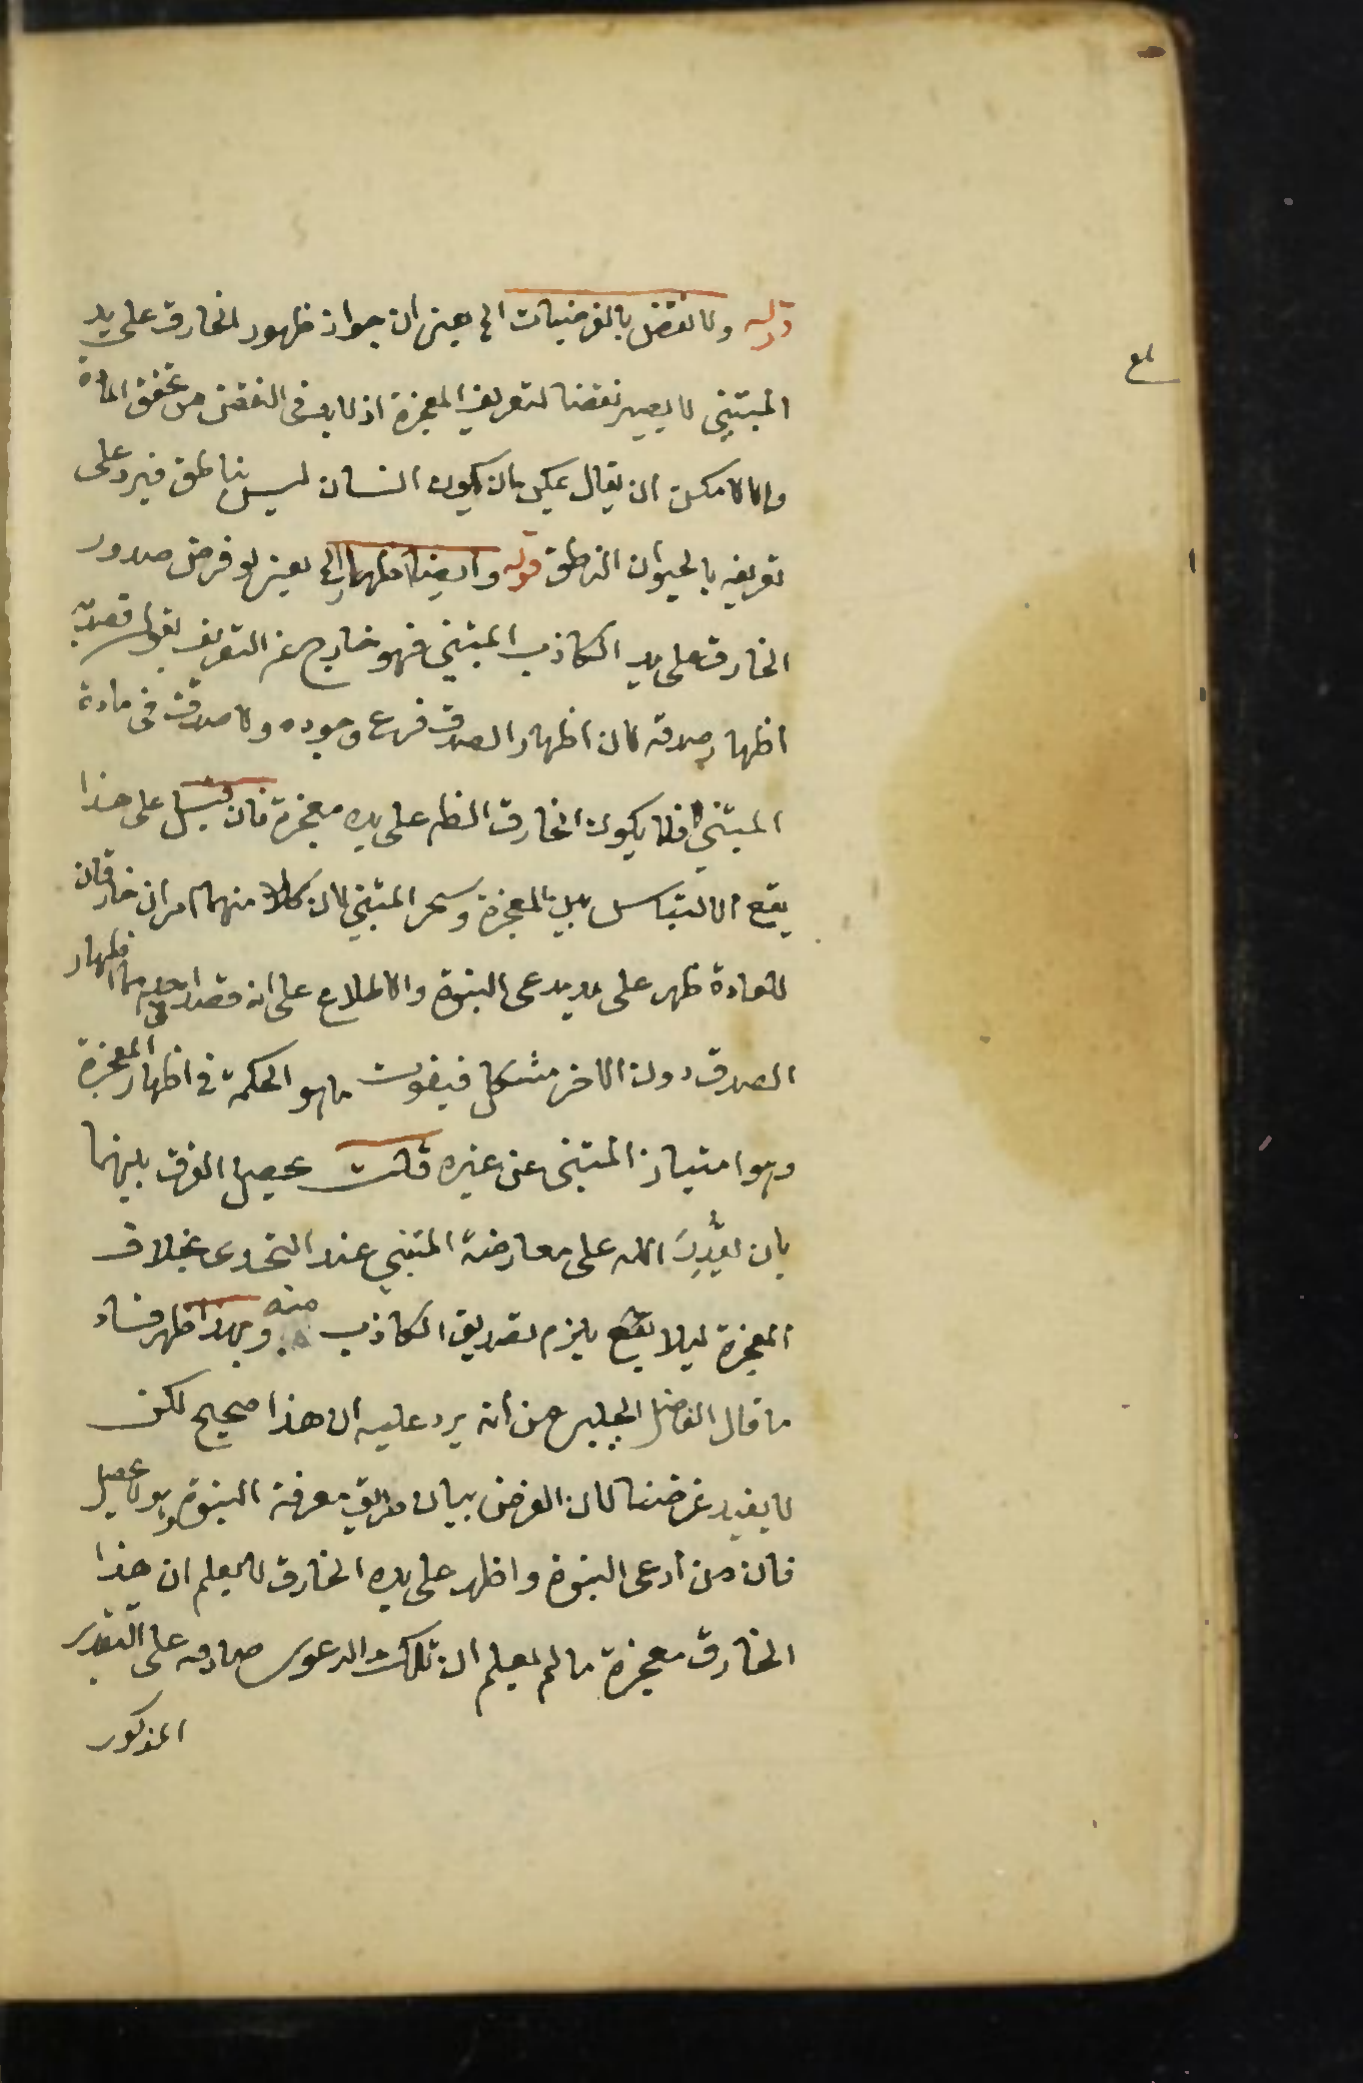 قوله ولا نقض بالفرضيات الخ يعنى ان جواز ظهور الخارق على يد
المتنبى لا يصير نقضا لتعريف المعجزة اذ لا بد فى النقض من تحقق المادة
والا لامكن ان يقال يمكن بان يكون انسان ليس بناطق فيرد على
تعريفه بالحيوان الناطق قوله وايضا اظهار الخ يعنى لو فرض صدور
الخارق على يد الكاذب المتنبى فهو خارج عن التعريف بقوله قصد به
اظهار صدقه لان اظهار الصدق فرع وجوده ولا صدق فى مادة
المتنبى فلا يكون الخارق الظاهر على يده معجزة فان قيل على هذا
يقع الالتباس بين المعجزة وسحر المتنبى لان كلا منهما امران خارقان
للعادة ظهر على يد مدعى النبوة والاطلاع على انه قصد احدهما اظهار
الصدق دون الاخر مشكل فيفوت ما هو الحكمة فى اظهار المعجزة
وهو امتياز المتنبى عن غيره قلت يحصل الفرق بينهما
بان يقدر الله على معارضة المتنبى عند التحدى بخلاف
المعجزة ليلا يقع يلزم تصديق الكاذب منه وبهذا ظهر فساد
ما قال الفاضل الچلبى من انه يرد عليه ان هذا صحيح لكن
لا يفيد غرضنا لان الغرض بيان طريق معرفة النبوة وهو لا يحصل
فان من ادعى النبوة واظهر على يده الخارق لا يعلم ان هذا
الخارق معجزة ما لم يعلم ان تلك الدعوى صادقه على التقدير
المذكور